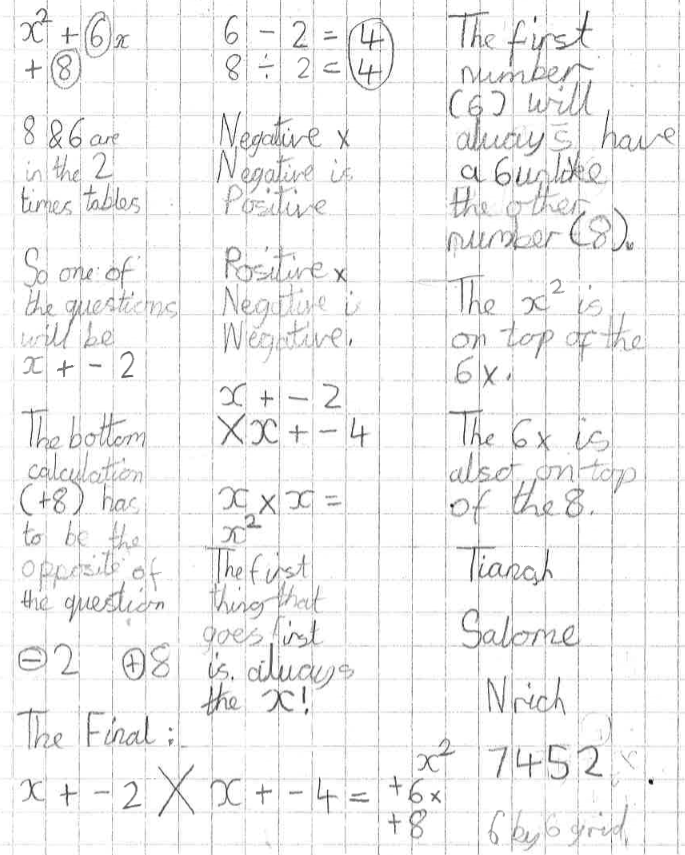 x² + 6x
+ 8
8 & 6 are
in the 2
times tables
So one of
the questions
will be
x + - 2
The bottom
calculation
(+8) has
to be the
opposite of
the question
- 2 + 8
The Final :
x + - 2 X x + - 4 = x² + 6x + 8
6 - 2 = 4
8 ÷ 2 = 4
Negative x
Negative is
Positive
Positive x
Negative is
Negative.
x + - 2
X x + - 4
x x x =
x²
The first
thing that
goes first
is always
the x!
The first
number
(6) will
always have
a 6 unlike
the other
number (8).
The x² is
on top of the
6x.
The 6x is
also on top
of the 8.
Tianah
Salome
Nrich
7452
6 by 6 grid.